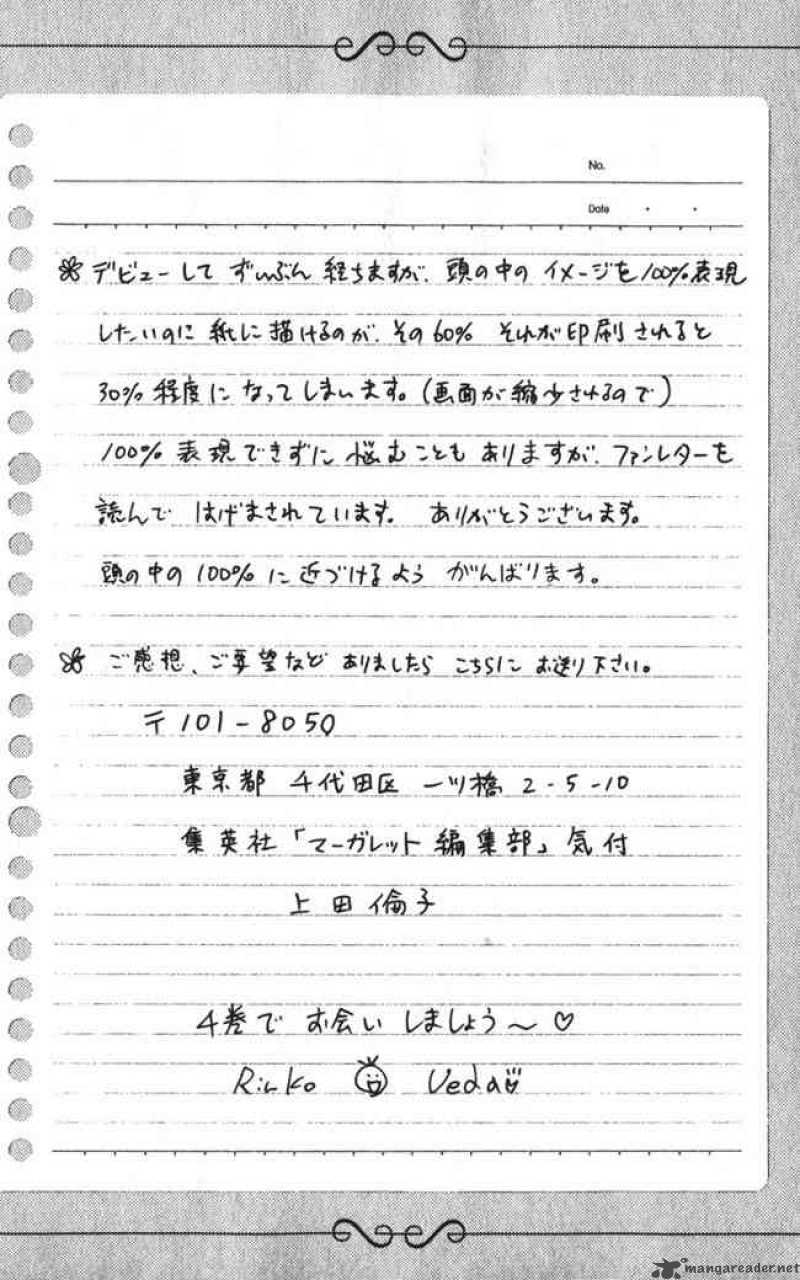 No.
Date ・ ・
デビューして ずいぶん 経ちますが、頭の中の イメージを100%表現
したいのに 紙に描けるのが、その60% それが印刷されると
30%程度に なってしまいます。(画面が縮少されるので)
100% 表現できずに 悩むことも ありますが、ファンレターを
読んで はげまされています。 ありがとうございます。
頭の中の100%に近づけるよう がんばります。
ご感想、ご要望など ありましたら こちらに お送り下さい。
〒101-8050
東京都 千代田区 一ツ橋 2-5-10
集英社「マーガレット 編集部」気付
上田倫子
4巻で お会い しましょう〜♡
Rinko Ueda
mangareader.net